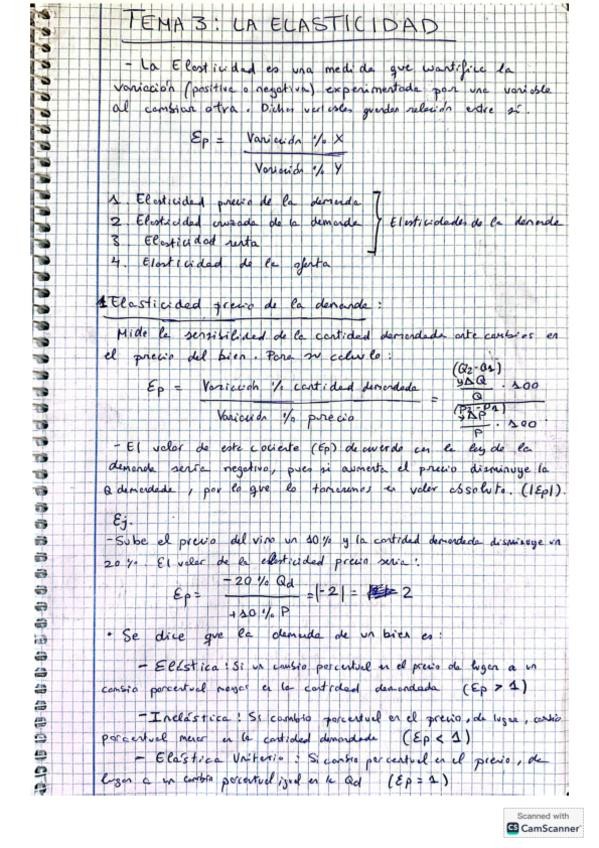 TEMA 3: LA ELASTICIDAD
- La Elasticidad es una medida que cuantifica la
variación (positiva o negativa) experimentada por una variable
al cambiar otra. Dichas variables guardan relación entre sí.
Ep = Variación % X
Variación % Y
1. Elasticidad precio de la demanda
2. Elasticidad cruzada de la demanda } Elasticidades de la demanda
3. Elasticidad renta
4. Elasticidad de la oferta
1 Elasticidad precio de la demanda:
Mide la sensibilidad de la cantidad demandada ante cambios en
el precio del bien. Para su calculo:
(Q2-Q1)
Ep = Variación % cantidad demandada = ΔQ/Q · 100
Variación % precio (P2-P1) ΔP/P · 100
- El valor de este cociente (Ep) de acuerdo con la ley de la
demanda sería negativo, pues si aumenta el precio disminuye la
Q demandada, por lo que lo tomaremos en valor absoluto. (|Ep|).
Ej.
- Sube el precio del vino un 10% y la cantidad demandada disminuye un
20%. El valor de la elasticidad precio sería:
Ep = -20% Qd = |-2| = 2
+10% P
• Se dice que la demanda de un bien es:
- Elástica: Si un cambio porcentual en el precio da lugar a un
cambio porcentual mayor en la cantidad demandada (Ep > 1)
- Inelástica: Si cambio porcentual en el precio, da lugar, cambio
porcentual menor en la cantidad demandada (Ep < 1)
- Elástica Unitaria: Si cambio porcentual en el precio, da
lugar a un cambio porcentual igual en la Qd (Ep = 1)
Scanned with
CS CamScanner